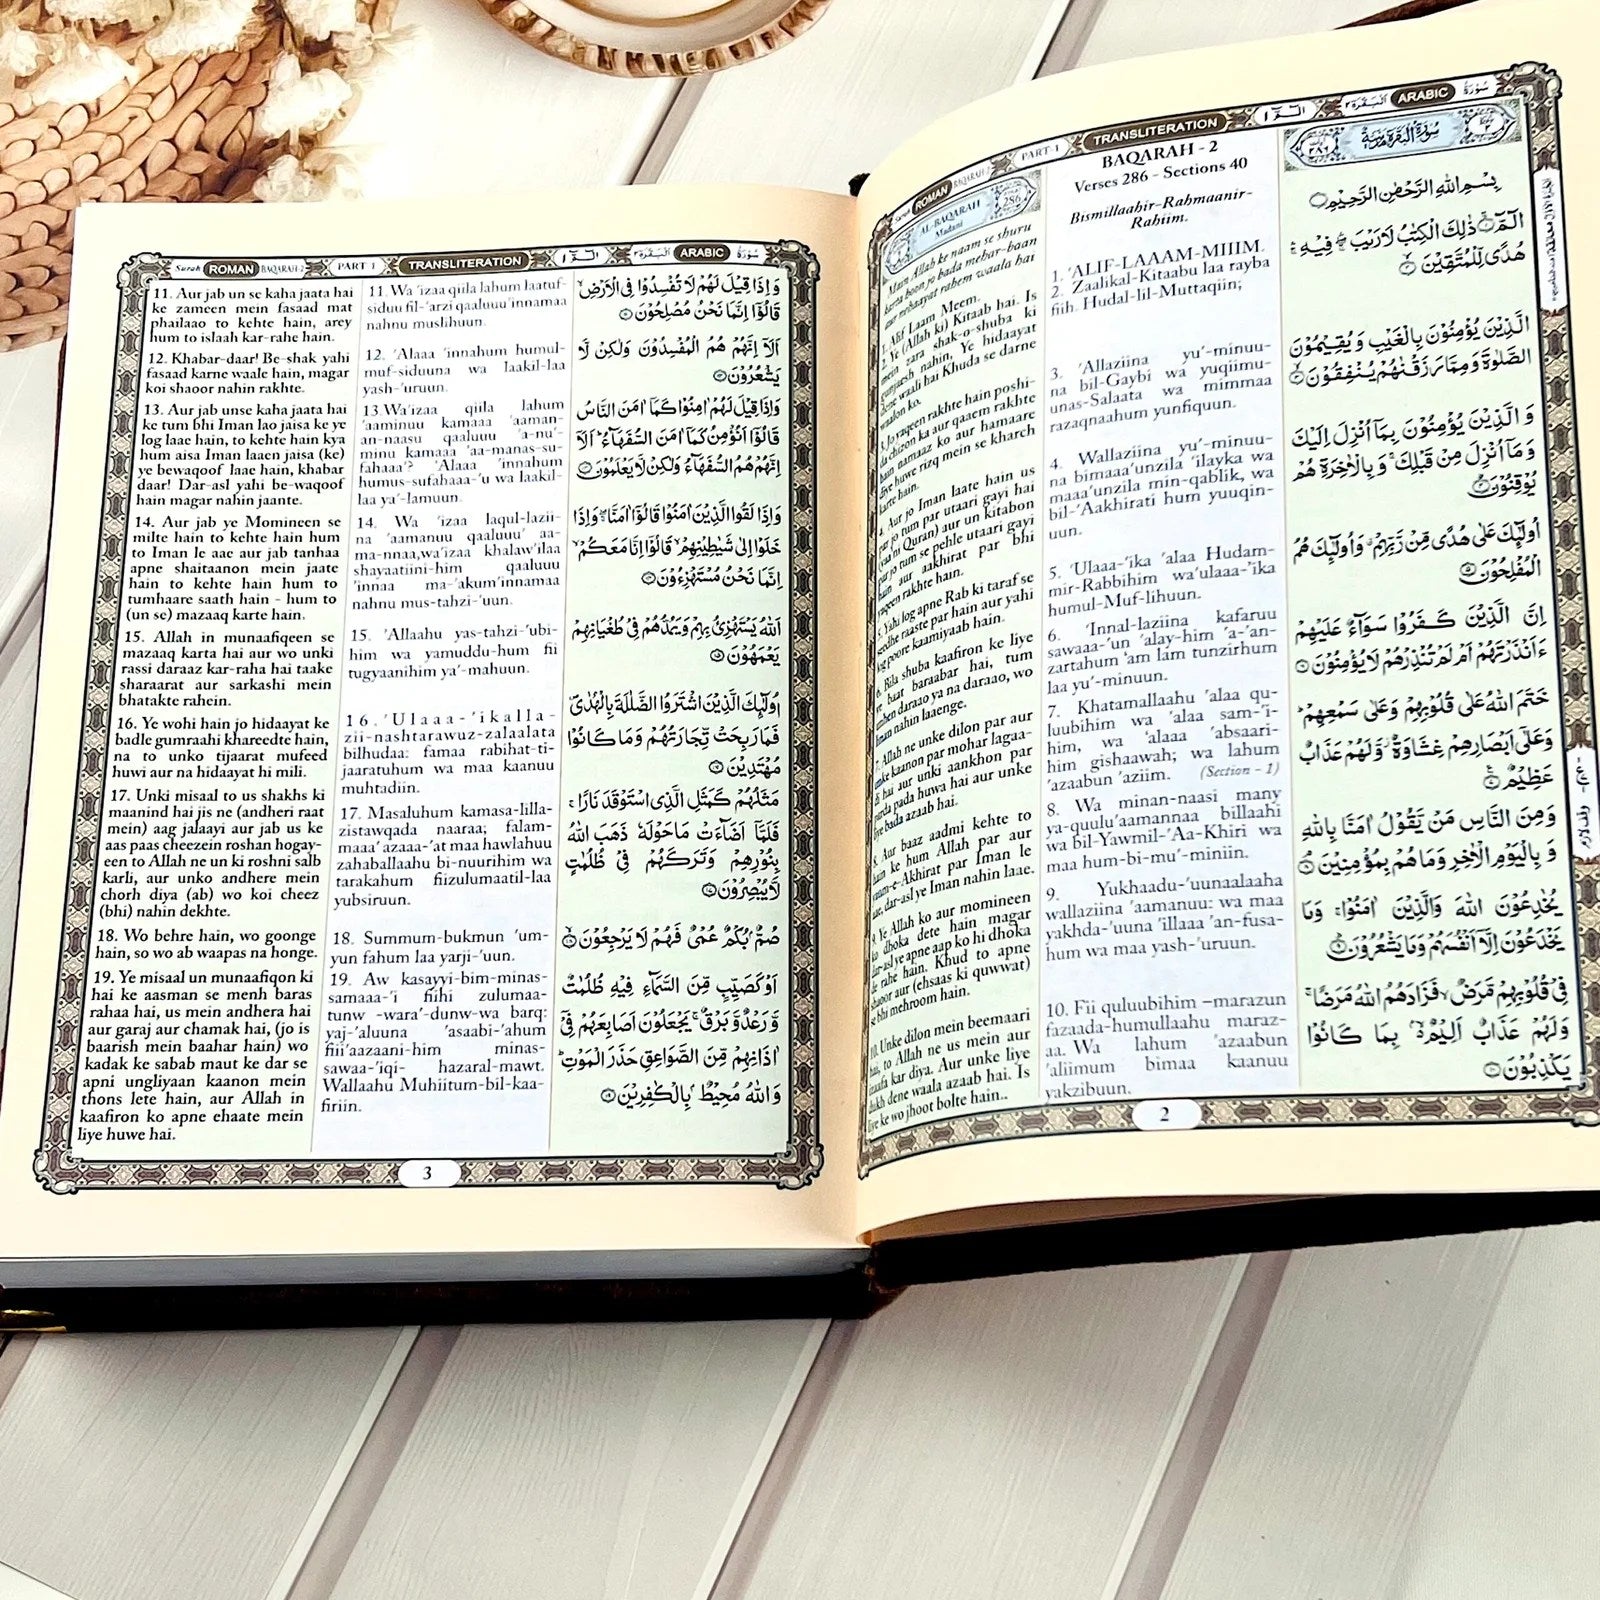 Surah ROMAN BAQARAH-2 PART-1 TRANSLITERATION الٓمّٓ ١ اَلْبَقَرَة ٢ ARABIC سُوْرَةُ
AL-BAQARAH
Madani
286
Main Allah ke naam se shuru
karta hoon jo bada meher-baan
aur nehaayat rahem waala hai
1. Alif Laam Meem.
2. Ye (Allah ki) Kitaab hai. Is
mein zara shak-o-shuba ki
gunjaesh nahin, Ye hidaayat
dene waali hai Khuda se darne
waalon ko.
3. Jo yaqeen rakhte hain poshi-
da chizon ka aur qaaem rakhte
hain namaaz ko aur hamaare
diye huwe rizq mein se kharch
karte hain.
4. Aur jo Iman laate hain us
par jo tum par utaari gayi hai
(yaa'ni Quran) aur un kitabon
par jo tum se pehle utaari gayi
hain aur aakhirat par bhi
yaqeen rakhte hain.
5. Yahi log apne Rab ki taraf se
seedhe raaste par hain aur yahi
log poore kaamiyaab hain.
6. Bila shuba kaafiron ke liye
ye baat baraabar hai, tum
unhen daraao ya na daraao, wo
Iman nahin laaenge.
7. Allah ne unke dilon par aur
unke kaanon par mohar lagaa-
di hai aur unki aankhon par
parda pada huwa hai aur unke
liye bada azaab hai.
8. Aur baaz aadmi kehte to
hain ke hum Allah par aur
Yaum-e-Akhirat par Iman le
aae, dar-asl ye Iman nahin laae.
9. Ye Allah ko aur momineen
ko dhoka dete hain magar
dar-asl ye apne aap ko hi dhoka
de rahe hain. Khud to apne
shaoor aur (ehsaas ki quwwat)
se bhi mehroom hain.
10. Unke dilon mein beemaari
hai, to Allah ne us mein aur
izaafa kar diya. Aur unke liye
dukh dene waala azaab hai. Is
liye ke wo jhoot bolte hain..
BAQARAH - 2
Verses 286 - Sections 40
Bismillaahir-Rahmaanir-
Rahiim.
1. 'ALIF-LAAAM-MIIIM.
2. Zaalikal-Kitaabu laa rayba
fiih. Hudal-lil-Muttaqiin;
3. 'Allaziina yu'-minuu-
na bil-Gaybi wa yuqiimu-
unas-Salaata wa mimmaa
razaqnaahum yunfiquun.
4. Wallaziina yu'-minuu-
na bimaaa'unzila 'ilayka wa
maaa'unzila min-qablik, wa
bil-'Aakhirati hum yuuqin-
uun.
5. 'Ulaaa-'ika 'alaa Hudam-
mir-Rabbihim wa'ulaaa-'ika
humul-Muf-lihuun.
6. 'Innal-laziina kafaruu
sawaaa-'un 'alay-him 'a-'an-
zartahum 'am lam tunzirhum
laa yu'-minuun.
7. Khatamallaahu 'alaa qu-
luubihim wa 'alaa sam-'i-
him, wa 'alaaa 'absaari-
him gishaawah; wa lahum
'azaabun 'aziim. (Section - 1)
8. Wa minan-naasi many
ya-quulu'aamannaa billaahi
wa bil-Yawmil-'Aa-Khiri wa
maa hum-bi-mu'-miniin.
9. Yukhaadu-'uunaalaaha
wallaziina 'aamanuu: wa maa
yakhda-'uuna 'illaaa 'an-fusa-
hum wa maa yash-'uruun.
10. Fii quluubihim –marazun
fazaada-humullaahu maraz-
aa. Wa lahum 'azaabun
'aliimum bimaa kaanuu
yakzibuun.
سُوْرَةُ الْبَقَرَةِ مَدَنِيَّةٌ
بِسْمِ اللّٰهِ الرَّحْمٰنِ الرَّحِيْمِ
الٓمّٓ ۚ ذٰلِكَ الْكِتٰبُ لَا رَيْبَ ۛ فِيْهِ ۛ
هُدًى لِّلْمُتَّقِيْنَ
الَّذِيْنَ يُؤْمِنُوْنَ بِالْغَيْبِ وَ يُقِيْمُوْنَ
الصَّلٰوةَ وَ مِمَّا رَزَقْنٰهُمْ يُنْفِقُوْنَ
وَ الَّذِيْنَ يُؤْمِنُوْنَ بِمَاۤ اُنْزِلَ اِلَيْكَ
وَ مَاۤ اُنْزِلَ مِنْ قَبْلِكَ ۚ وَ بِالْاٰخِرَةِ هُمْ
يُوْقِنُوْنَ
اُولٰٓئِكَ عَلٰى هُدًى مِّنْ رَّبِّهِمْ ۗ وَ اُولٰٓئِكَ هُمُ
الْمُفْلِحُوْنَ
اِنَّ الَّذِيْنَ كَفَرُوْا سَوَآءٌ عَلَيْهِمْ
ءَاَنْذَرْتَهُمْ اَمْ لَمْ تُنْذِرْهُمْ لَا يُؤْمِنُوْنَ
خَتَمَ اللّٰهُ عَلٰى قُلُوْبِهِمْ وَعَلٰى سَمْعِهِمْ ؕ
وَعَلٰۤى اَبْصَارِهِمْ غِشَاوَةٌ ۫ وَّلَهُمْ عَذَابٌ
عَظِيْمٌ
وَمِنَ النَّاسِ مَنْ يَّقُوْلُ اٰمَنَّا بِاللّٰهِ
وَ بِالْيَوْمِ الْاٰخِرِ وَمَا هُمْ بِمُؤْمِنِيْنَ
يُخٰدِعُوْنَ اللّٰهَ وَالَّذِيْنَ اٰمَنُوْا ۚ وَمَا
يَخْدَعُوْنَ اِلَّاۤ اَنْفُسَهُمْ وَمَا يَشْعُرُوْنَ
فِيْ قُلُوْبِهِمْ مَّرَضٌ ۙ فَزَادَهُمُ اللّٰهُ مَرَضًا ۚ
وَلَهُمْ عَذَابٌ اَلِيْمٌۢ ۙ۬ بِمَا كَانُوْا
يَكْذِبُوْنَ
2
Surah ROMAN BAQARAH-2 PART-1 TRANSLITERATION الٓمّٓ ١ اَلْبَقَرَة ٢ ARABIC سُوْرَةُ
11. Aur jab un se kaha jaata hai
ke zameen mein fasaad mat
phailaao to kehte hain, arey
hum to islaah kar-rahe hain.
12. Khabar-daar! Be-shak yahi
fasaad karne waale hain, magar
koi shaoor nahin rakhte.
13. Aur jab unse kaha jaata hai
ke tum bhi Iman lao jaisa ke ye
log laae hain, to kehte hain kya
hum aisa Iman laaen jaisa (ke)
ye bewaqoof laae hain, khabar
daar! Dar-asl yahi be-waqoof
hain magar nahin jaante.
14. Aur jab ye Momineen se
milte hain to kehte hain hum
to Iman le aae aur jab tanhaa
apne shaitaanon mein jaate
hain to kehte hain hum to
tumhaare saath hain - hum to
(un se) mazaaq karte hain.
15. Allah in munaafiqeen se
mazaaq karta hai aur wo unki
rassi daraaz kar-raha hai taake
sharaarat aur sarkashi mein
bhatakte rahein.
16. Ye wohi hain jo hidaayat ke
badle gumraahi khareedte hain,
na to unko tijaarat mufeed
huwi aur na hidaayat hi mili.
17. Unki misaal to us shakhs ki
maanind hai jis ne (andheri raat
mein) aag jalaayi aur jab us ke
aas paas cheezein roshan hogay-
een to Allah ne un ki roshni salb
karli, aur unko andhere mein
chorh diya (ab) wo koi cheez
(bhi) nahin dekhte.
18. Wo behre hain, wo goonge
hain, so wo ab waapas na honge.
19. Ye misaal un munaafiqon ki
hai ke aasman se menh baras
rahaa hai, us mein andhera hai
aur garaj aur chamak hai, (jo is
baarish mein baahar hain) wo
kadak ke sabab maut ke dar se
apni ungliyaan kaanon mein
thons lete hain, aur Allah in
kaafiron ko apne ehaate mein
liye huwe hai.
11. Wa 'izaa qiila lahum laatuf-
siduu fil-'arzi qaaluuu'innamaa
nahnu muslihuun.
12. 'Alaaa 'innahum humul-
muf-siduuna wa laakil-laa
yash-'uruun.
13.Wa'izaa qiila lahum
'aaminuu kamaaa 'aaman-
an-naasu qaaluuu 'a-nu'-
minu kamaaa 'aa-manas-su-
fahaaa'? 'Alaaa 'innahum
humus-sufahaaa-'u wa laakil-
laa ya'-lamuun.
14. Wa 'izaa laqul-lazii-
na 'aamanuu qaaluuu' aa-
ma-nnaa,wa'izaa khalaw'ilaa
shayaatiini-him qaaluuu
'innaa ma-'akum'innamaa
nahnu mus-tahzi-'uun.
15. 'Allaahu yas-tahzi-'ubi-
him wa yamuddu-hum fii
tugyaanihim ya'-mahuun.
16. 'Ulaaa-'ikalla-
zii-nashtarawuz-zalaalata
bilhudaa: famaa rabihat-ti-
jaaratuhum wa maa kaanuu
muhtadiin.
17. Masaluhum kamasa-lilla-
zistawqada naaraa; falam-
maaa'azaaa-'at maa hawlahuu
zahaballaahu bi-nuurihim wa
tarakahum fiizulumaatil-laa
yubsiruun.
18. Summum-bukmun 'um-
yun fahum laa yarji-'uun.
19. Aw kasayyi-bim-minas-
samaaa-'i fiihi zulumaa-
tunw -wara'-dunw-wa barq:
yaj-'aluuna 'asaabi-'ahum
fiii'aazaani-him minas-
sawaa-'iqi- hazaral-mawt.
Wallaahu Muhiitum-bil-kaa-
firiin.
وَ اِذَا قِيْلَ لَهُمْ لَا تُفْسِدُوْا فِى الْاَرْضِ ۙ
قَالُوْۤا اِنَّمَا نَحْنُ مُصْلِحُوْنَ
اَلَاۤ اِنَّهُمْ هُمُ الْمُفْسِدُوْنَ وَلٰكِنْ لَّا
يَشْعُرُوْنَ
وَاِذَا قِيْلَ لَهُمْ اٰمِنُوْا كَمَاۤ اٰمَنَ النَّاسُ
قَالُوْۤا اَنُؤْمِنُ كَمَاۤ اٰمَنَ السُّفَهَآءُ ؕ اَلَاۤ
اِنَّهُمْ هُمُ السُّفَهَآءُ وَلٰكِنْ لَّا يَعْلَمُوْنَ
وَاِذَا لَقُوا الَّذِيْنَ اٰمَنُوْا قَالُوْۤا اٰمَنَّا ۖۚ وَاِذَا
خَلَوْا اِلٰى شَيٰطِيْنِهِمْ ۙ قَالُوْۤا اِنَّا مَعَكُمْ ۙ
اِنَّمَا نَحْنُ مُسْتَهْزِءُوْنَ
اَللّٰهُ يَسْتَهْزِئُ بِهِمْ وَيَمُدُّهُمْ فِيْ طُغْيَانِهِمْ
يَعْمَهُوْنَ
اُولٰٓئِكَ الَّذِيْنَ اشْتَرَوُا الضَّلٰلَةَ بِالْهُدٰى ۪
فَمَا رَبِحَتْ تِّجَارَتُهُمْ وَمَا كَانُوْا
مُهْتَدِيْنَ
مَثَلُهُمْ كَمَثَلِ الَّذِى اسْتَوْقَدَ نَارًا ۚ
فَلَمَّاۤ اَضَآءَتْ مَا حَوْلَهٗ ذَهَبَ اللّٰهُ
بِنُوْرِهِمْ وَتَرَكَهُمْ فِيْ ظُلُمٰتٍ
لَّا يُبْصِرُوْنَ
صُمٌّۢ بُكْمٌ عُمْيٌ فَهُمْ لَا يَرْجِعُوْنَ
اَوْ كَصَيِّبٍ مِّنَ السَّمَآءِ فِيْهِ ظُلُمٰتٌ
وَّرَعْدٌ وَّبَرْقٌ ۚ يَجْعَلُوْنَ اَصَابِعَهُمْ فِيْۤ
اٰذَانِهِمْ مِّنَ الصَّوَاعِقِ حَذَرَ الْمَوْتِ ؕ
وَاللّٰهُ مُحِيْطٌۢ بِالْكٰفِرِيْنَ
3